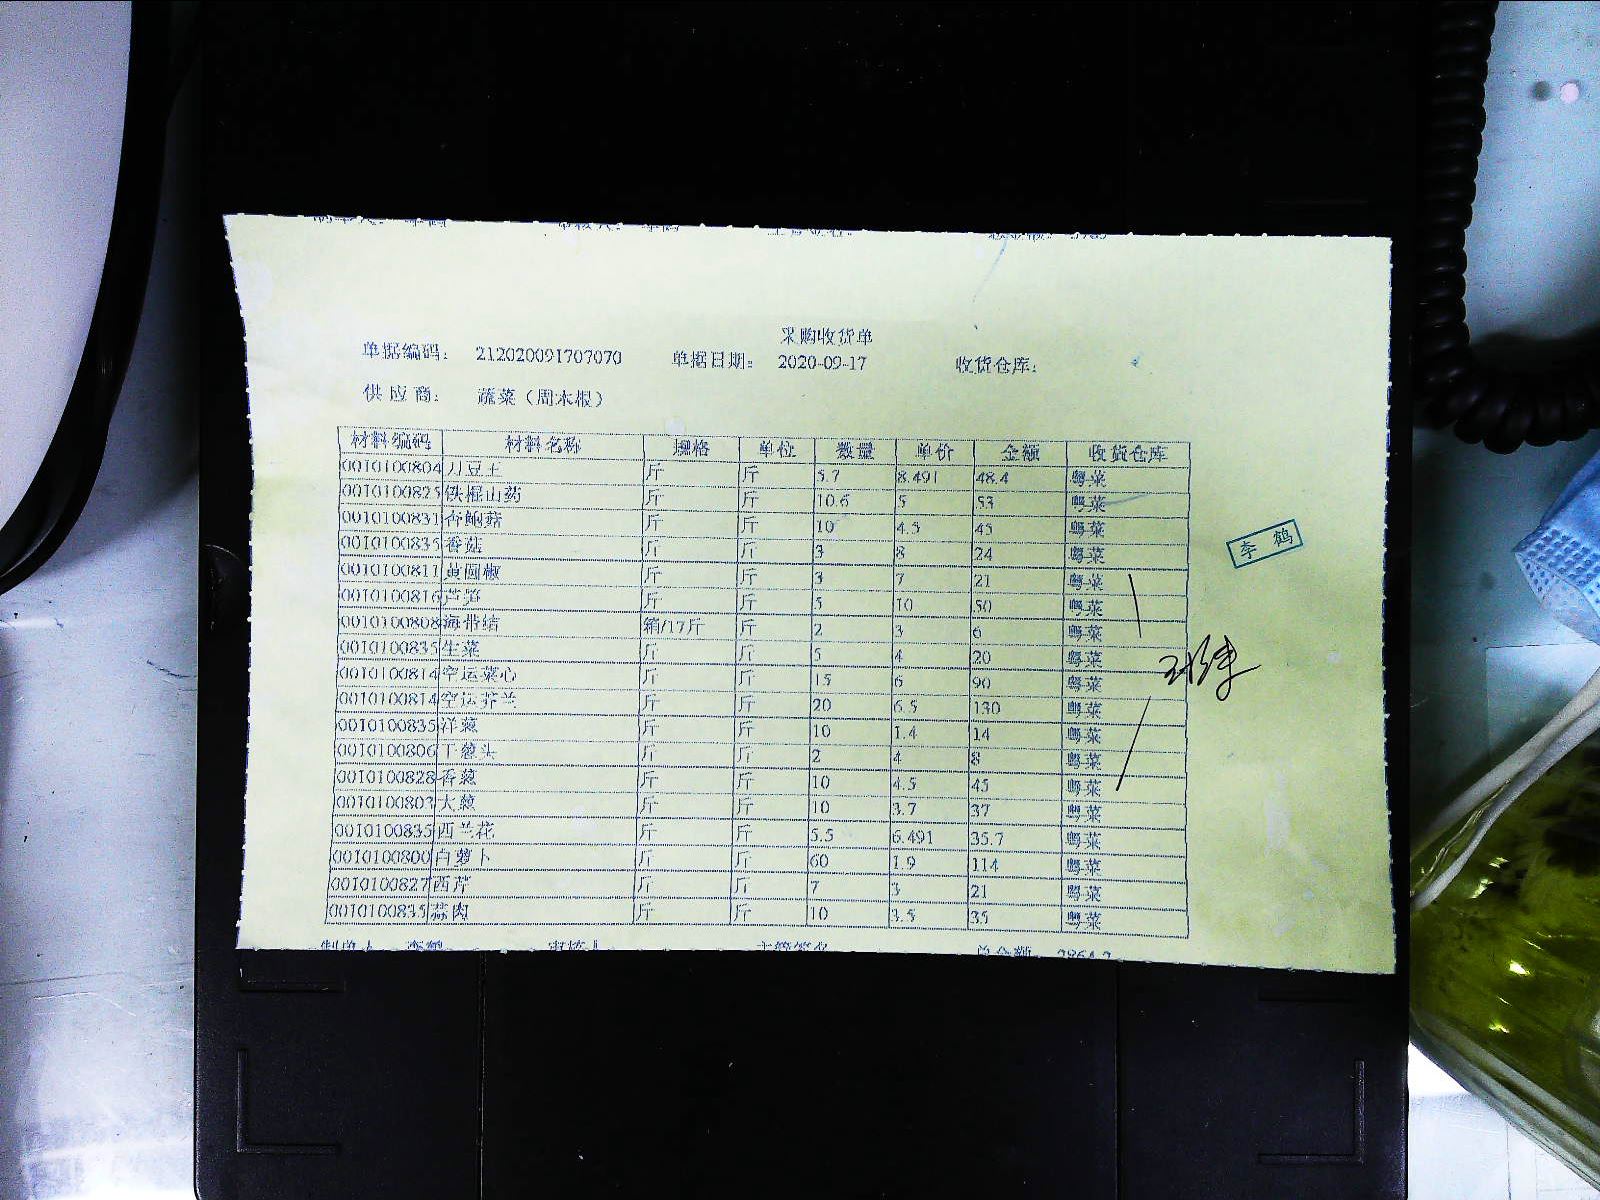 采购收货单
单据编码： 212020091707070 单据日期： 2020-09-17 收货仓库：
供应商： 蔬菜（周木根）
材料编码 材料名称 规格 单位 数量 单价 金额 收货仓库
0010100804 刀豆土 斤 斤 5.7 8.491 48.4 粤菜
0010100825 铁棍山药 斤 斤 10.6 5 53 粤菜
0010100831 杏鲍菇 斤 斤 10 4.5 45 粤菜
0010100835 香菇 斤 斤 3 8 24 粤菜
0010100811 黄圆椒 斤 斤 3 7 21 粤菜
0010100816 芦笋 斤 斤 5 10 50 粤菜
0010100808 海带结 箱/17斤 斤 2 3 6 粤菜
0010100835 生菜 斤 斤 5 4 20 粤菜
0010100814 空运菜心 斤 斤 15 6 90 粤菜
0010100814 空运芥兰 斤 斤 20 6.5 130 粤菜
0010100835 洋葱 斤 斤 10 1.4 14 粤菜
0010100806 干葱头 斤 斤 2 4 8 粤菜
0010100828 香葱 斤 斤 10 4.5 45 粤菜
0010100803 大葱 斤 斤 10 3.7 37 粤菜
0010100835 西兰花 斤 斤 5.5 6.491 35.7 粤菜
0010100800 白萝卜 斤 斤 60 1.9 114 粤菜
0010100827 西芹 斤 斤 7 3 21 粤菜
0010100835 蒜肉 斤 斤 10 3.5 35 粤菜
李鹤
制单人 李鹤 审核人 主管签名 总金额 2864.2